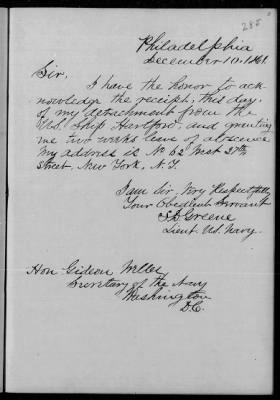 285
Philadelphia
December 10. 1861.
Sir,
I have the honor to ack-
nowledge the receipt, this day,
of my detachment from the
U.S. Ship Hartford, and granting
me two weeks leave of absence
My address is No 62 West 27th
Street, New York, N.Y.
I am Sir Very Respectfully
Your Obedient Servant
Greene
Lieut U.S. Navy.
Hon Gideon Welles
Secretary of the Navy
Washington
D.C.